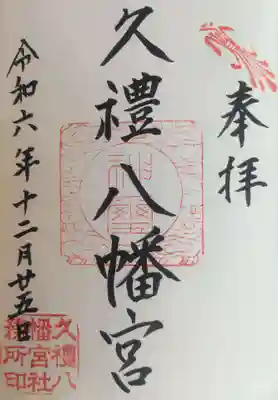 奉拝
久禮八幡宮
令和六年十二月廿五日
久禮八
幡宮社
務所印